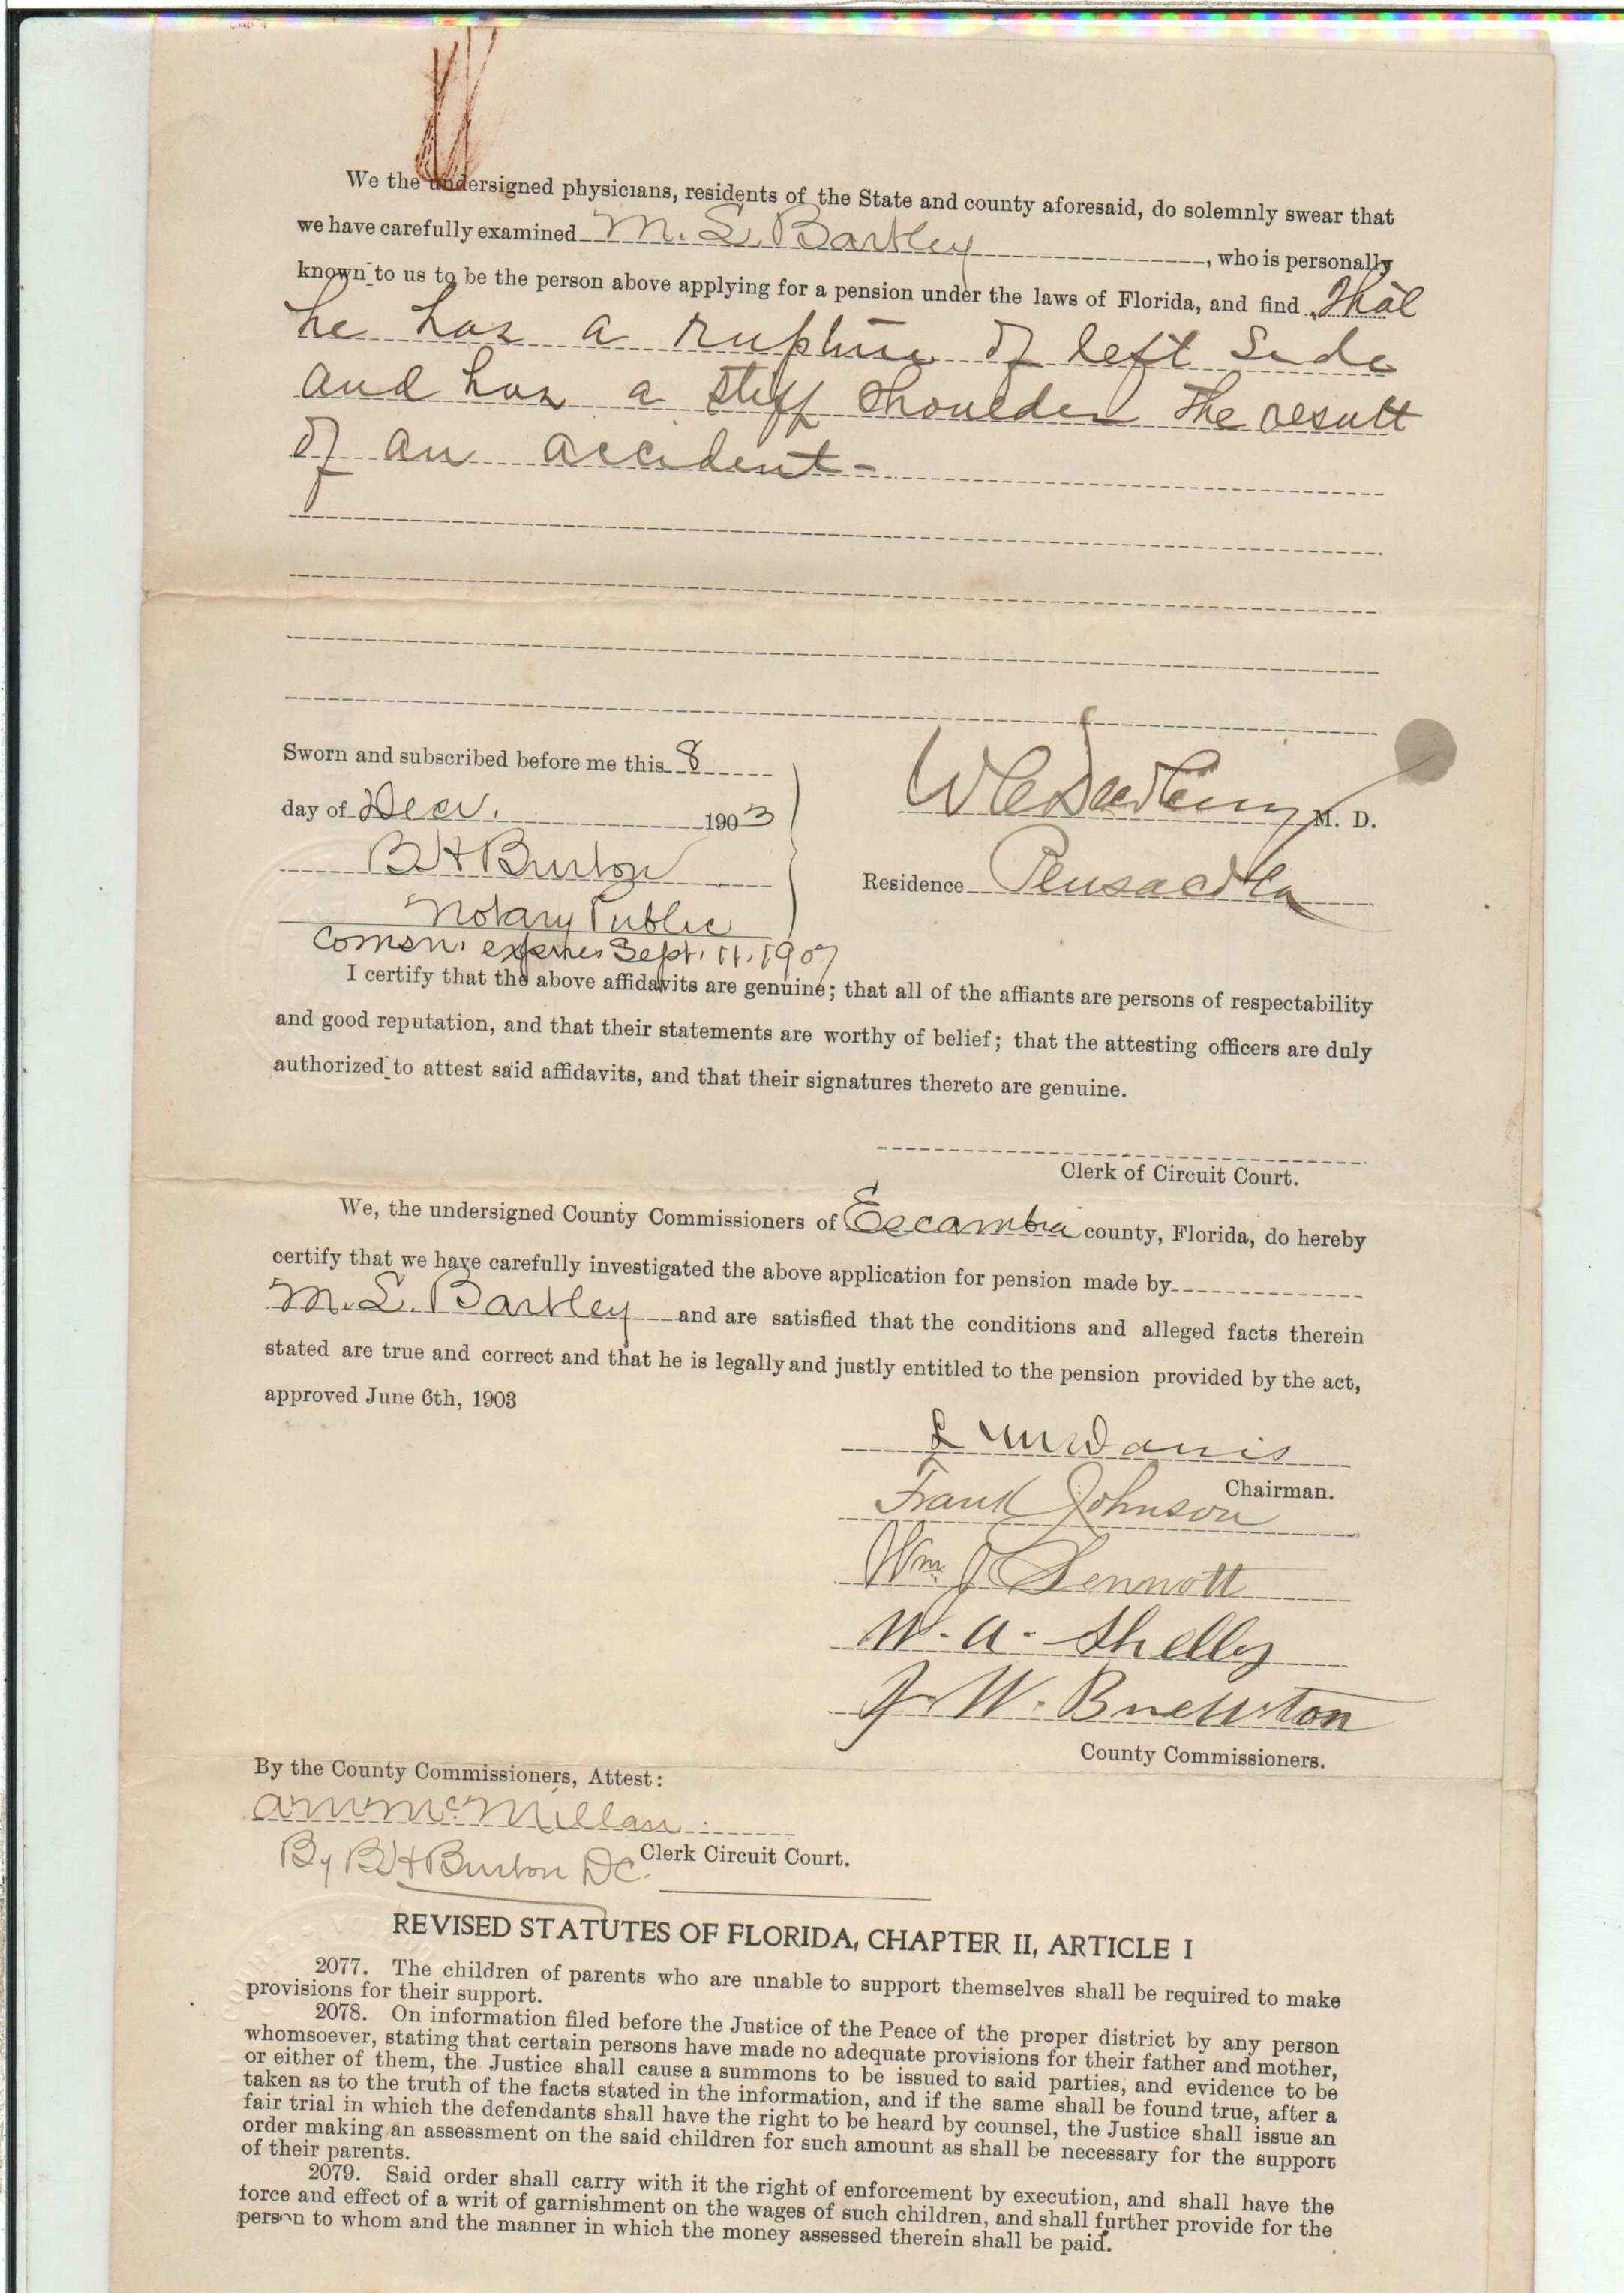 We the undersigned physicians, residents of the State and county aforesaid, do solemnly swear that
we have carefully examined M. L. Bartley, who is personally
known to us to be the person above applying for a pension under the laws of Florida, and find that
he has a rupture of left side
and has a stiff shoulder the result
of an accident-
Sworn and subscribed before me this 8
day of Decr. 1903
B H Burton
Notary Public
Comsn. expires Sept. 11, 1907
M. D.
Residence Pensacola
I certify that the above affidavits are genuine; that all of the affiants are persons of respectability
and good reputation, and that their statements are worthy of belief; that the attesting officers are duly
authorized to attest said affidavits, and that their signatures thereto are genuine.
Clerk of Circuit Court.
We, the undersigned County Commissioners of Escambia county, Florida, do hereby
certify that we have carefully investigated the above application for pension made by
M. L. Bartley and are satisfied that the conditions and alleged facts therein
stated are true and correct and that he is legally and justly entitled to the pension provided by the act,
approved June 6th, 1903
L M Davis
Chairman.
Frank Johnson
Wm J Sennott
W. A. Shelby
J. W. Brewton
County Commissioners.
By the County Commissioners, Attest:
A M McMillan
Clerk Circuit Court.
By B H Burton DC.
REVISED STATUTES OF FLORIDA, CHAPTER II, ARTICLE I
2077. The children of parents who are unable to support themselves shall be required to make
provisions for their support.
2078. On information filed before the Justice of the Peace of the proper district by any person
whomsoever, stating that certain persons have made no adequate provisions for their father and mother,
or either of them, the Justice shall cause a summons to be issued to said parties, and evidence to be
taken as to the truth of the facts stated in the information, and if the same shall be found true, after a
fair trial in which the defendants shall have the right to be heard by counsel, the Justice shall issue an
order making an assessment on the said children for such amount as shall be necessary for the support
of their parents.
2079. Said order shall carry with it the right of enforcement by execution, and shall have the
force and effect of a writ of garnishment on the wages of such children, and shall further provide for the
person to whom and the manner in which the money assessed therein shall be paid.